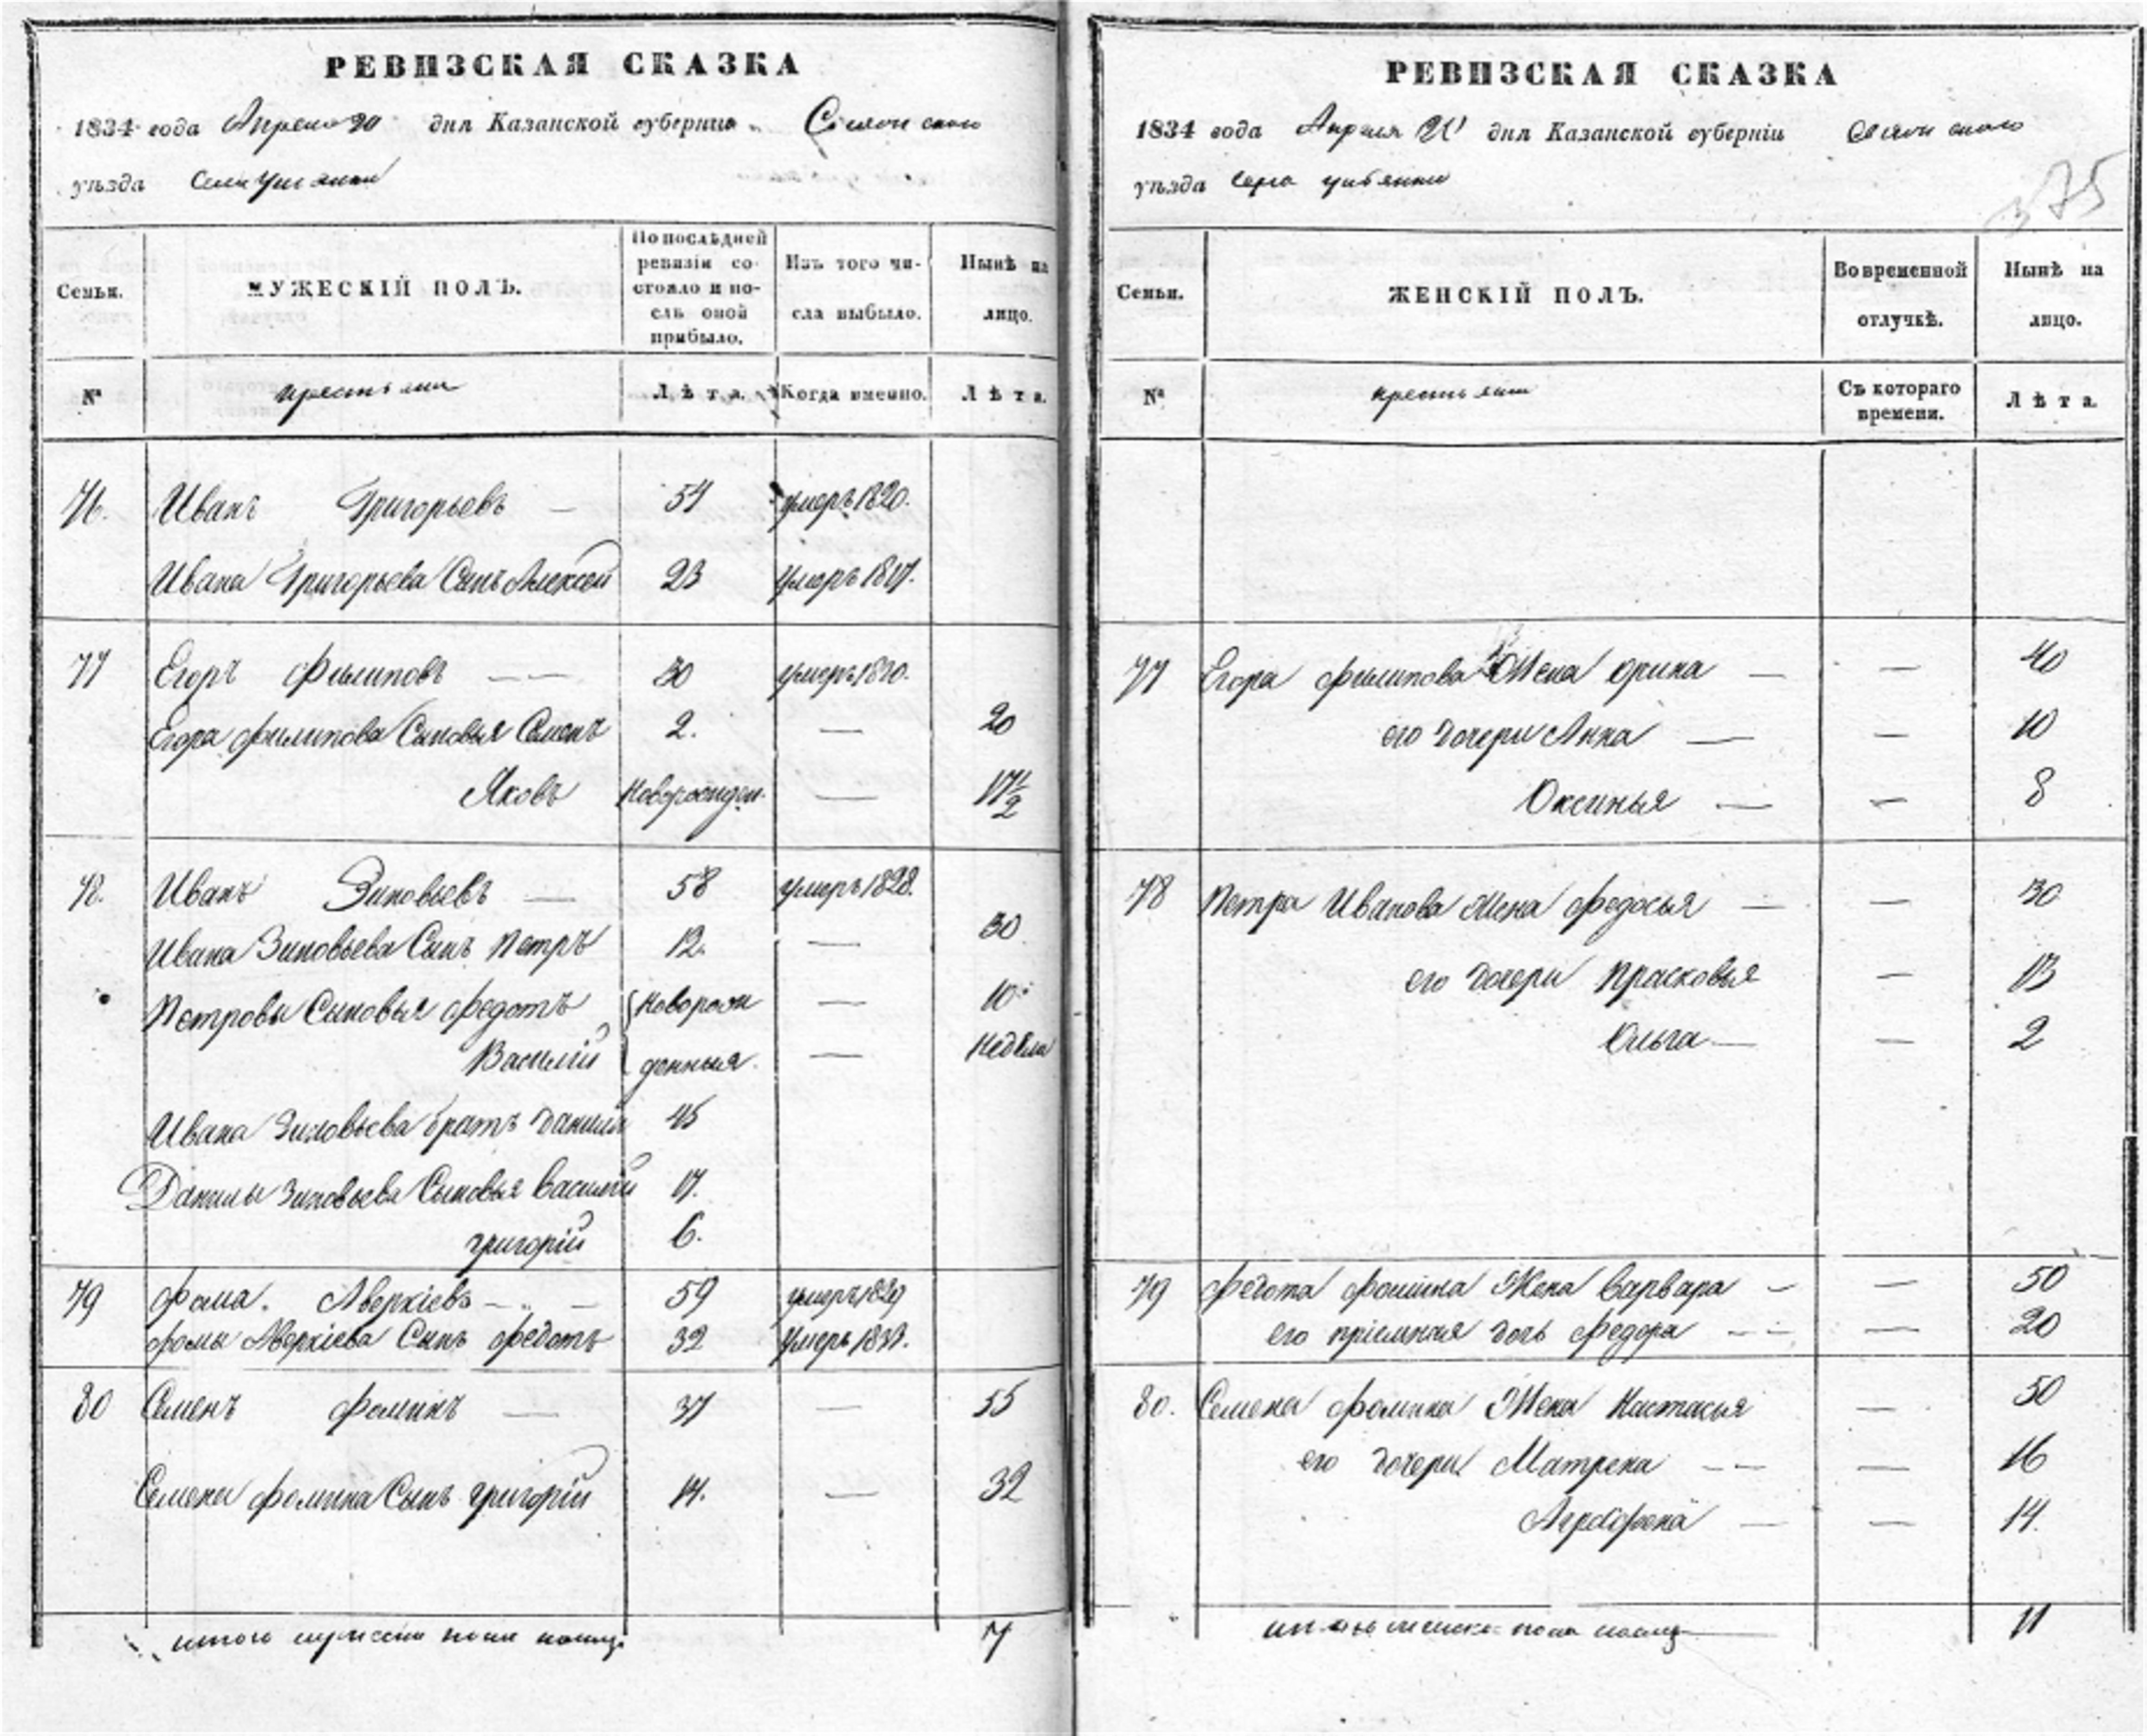 РЕВИЗСКАЯ СКАЗКА
1834 года Апреля 20 дня Казанской губерніи
уѣзда Села
Семьи.
МУЖЕСКІЙ ПОЛЪ.
По послѣдней ревизіи состояло и послѣ оной прибыло.
Изъ того числа выбыло.
Нынѣ на лицо.
№ крестьяне Лѣта. Когда именно. Лѣта.
76. Иванъ Григорьевъ — 54 умеръ 1820.
Ивана Григорьева Сынъ Алексей 23 умеръ 1817.
77 Егоръ Филиповъ — — 30 умеръ 1830.
Егора Филипова Сыновья Семенъ 2. — 20
Яковъ Новорожден. — 17 1/2
78. Иванъ Зиновьевъ — 58 умеръ 1828.
Ивана Зиновьева Сынъ Петръ 12. — 30
Петровы Сыновья Федотъ Новорож — 10
Василій денныя. — Неделя
Ивана Зиновьева братъ Данила 45
Данилы Зиновьева Сыновья Василій 17.
Григорій 6.
79 Фома Аверкіевъ — 59 умеръ 1829
Фомы Аверкіева Сынъ Федотъ 32 умеръ 1831.
80 Семенъ Фоминъ — 37 — 55
Семена Фомина Сынъ Григорій 14. — 32
итого мужеска пола налицо 7
РЕВИЗСКАЯ СКАЗКА
1834 года Апреля дня Казанской губерніи
уѣзда Села
375
Семьи.
ЖЕНСКІЙ ПОЛЪ.
Во временной отлучкѣ.
Нынѣ на лицо.
№ крестьяне Съ котораго времени. Лѣта.
77 Егора Филипова Жена Орина — — 40
его дочери Анна — — 10
Оксинья — — 8
78 Петра Иванова Жена Федосья — — 30
его дочери Прасковья — 13
Ольга — — 2
79 Федота Фомина Жена Варвара — — 50
его пріемная дочь Федора — — 20
80. Семена Фомина Жена Настасья — 50
его дочери Матрена — — 16
Аграфена — — 14.
итого женска пола налицо 11